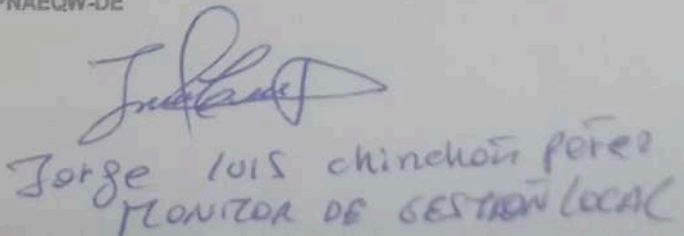 PNAEQW-DE
Jorge luis chinchoñ perez
MONITOR DE GESTION LOCAL